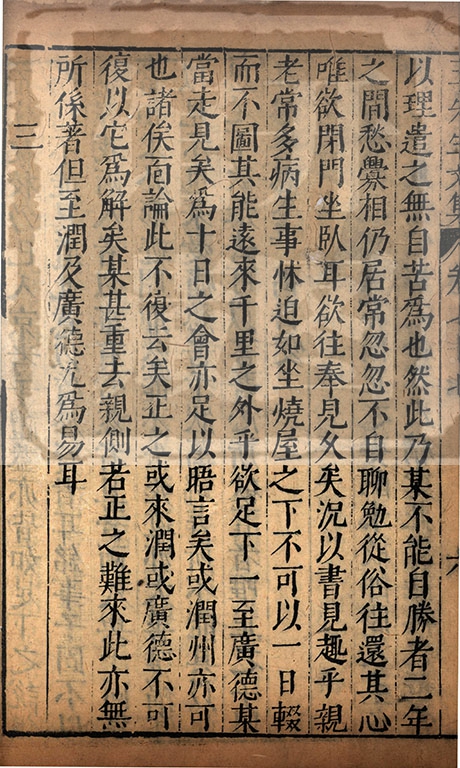 先生文集
六
以理遣之無自苦爲也然此乃某不能自勝者二年
之間愁釁相仍居常忽忽不自聊勉從俗往還其心
唯欲閉門坐臥耳欲往奉見久矣況以書見趣乎親
老常多病生事怵迫如坐燒屋之下不可以一日輟
而不圖其能遠來千里之外乎欲足下一至廣德某
當走見矣爲十日之會亦足以晤言矣或潤州亦可
也諸俟面論此不復云矣正之或來潤或廣德不可
復以它爲解矣某甚重去親側若正之難來此亦無
所係著但至潤及廣德尤爲易耳
三